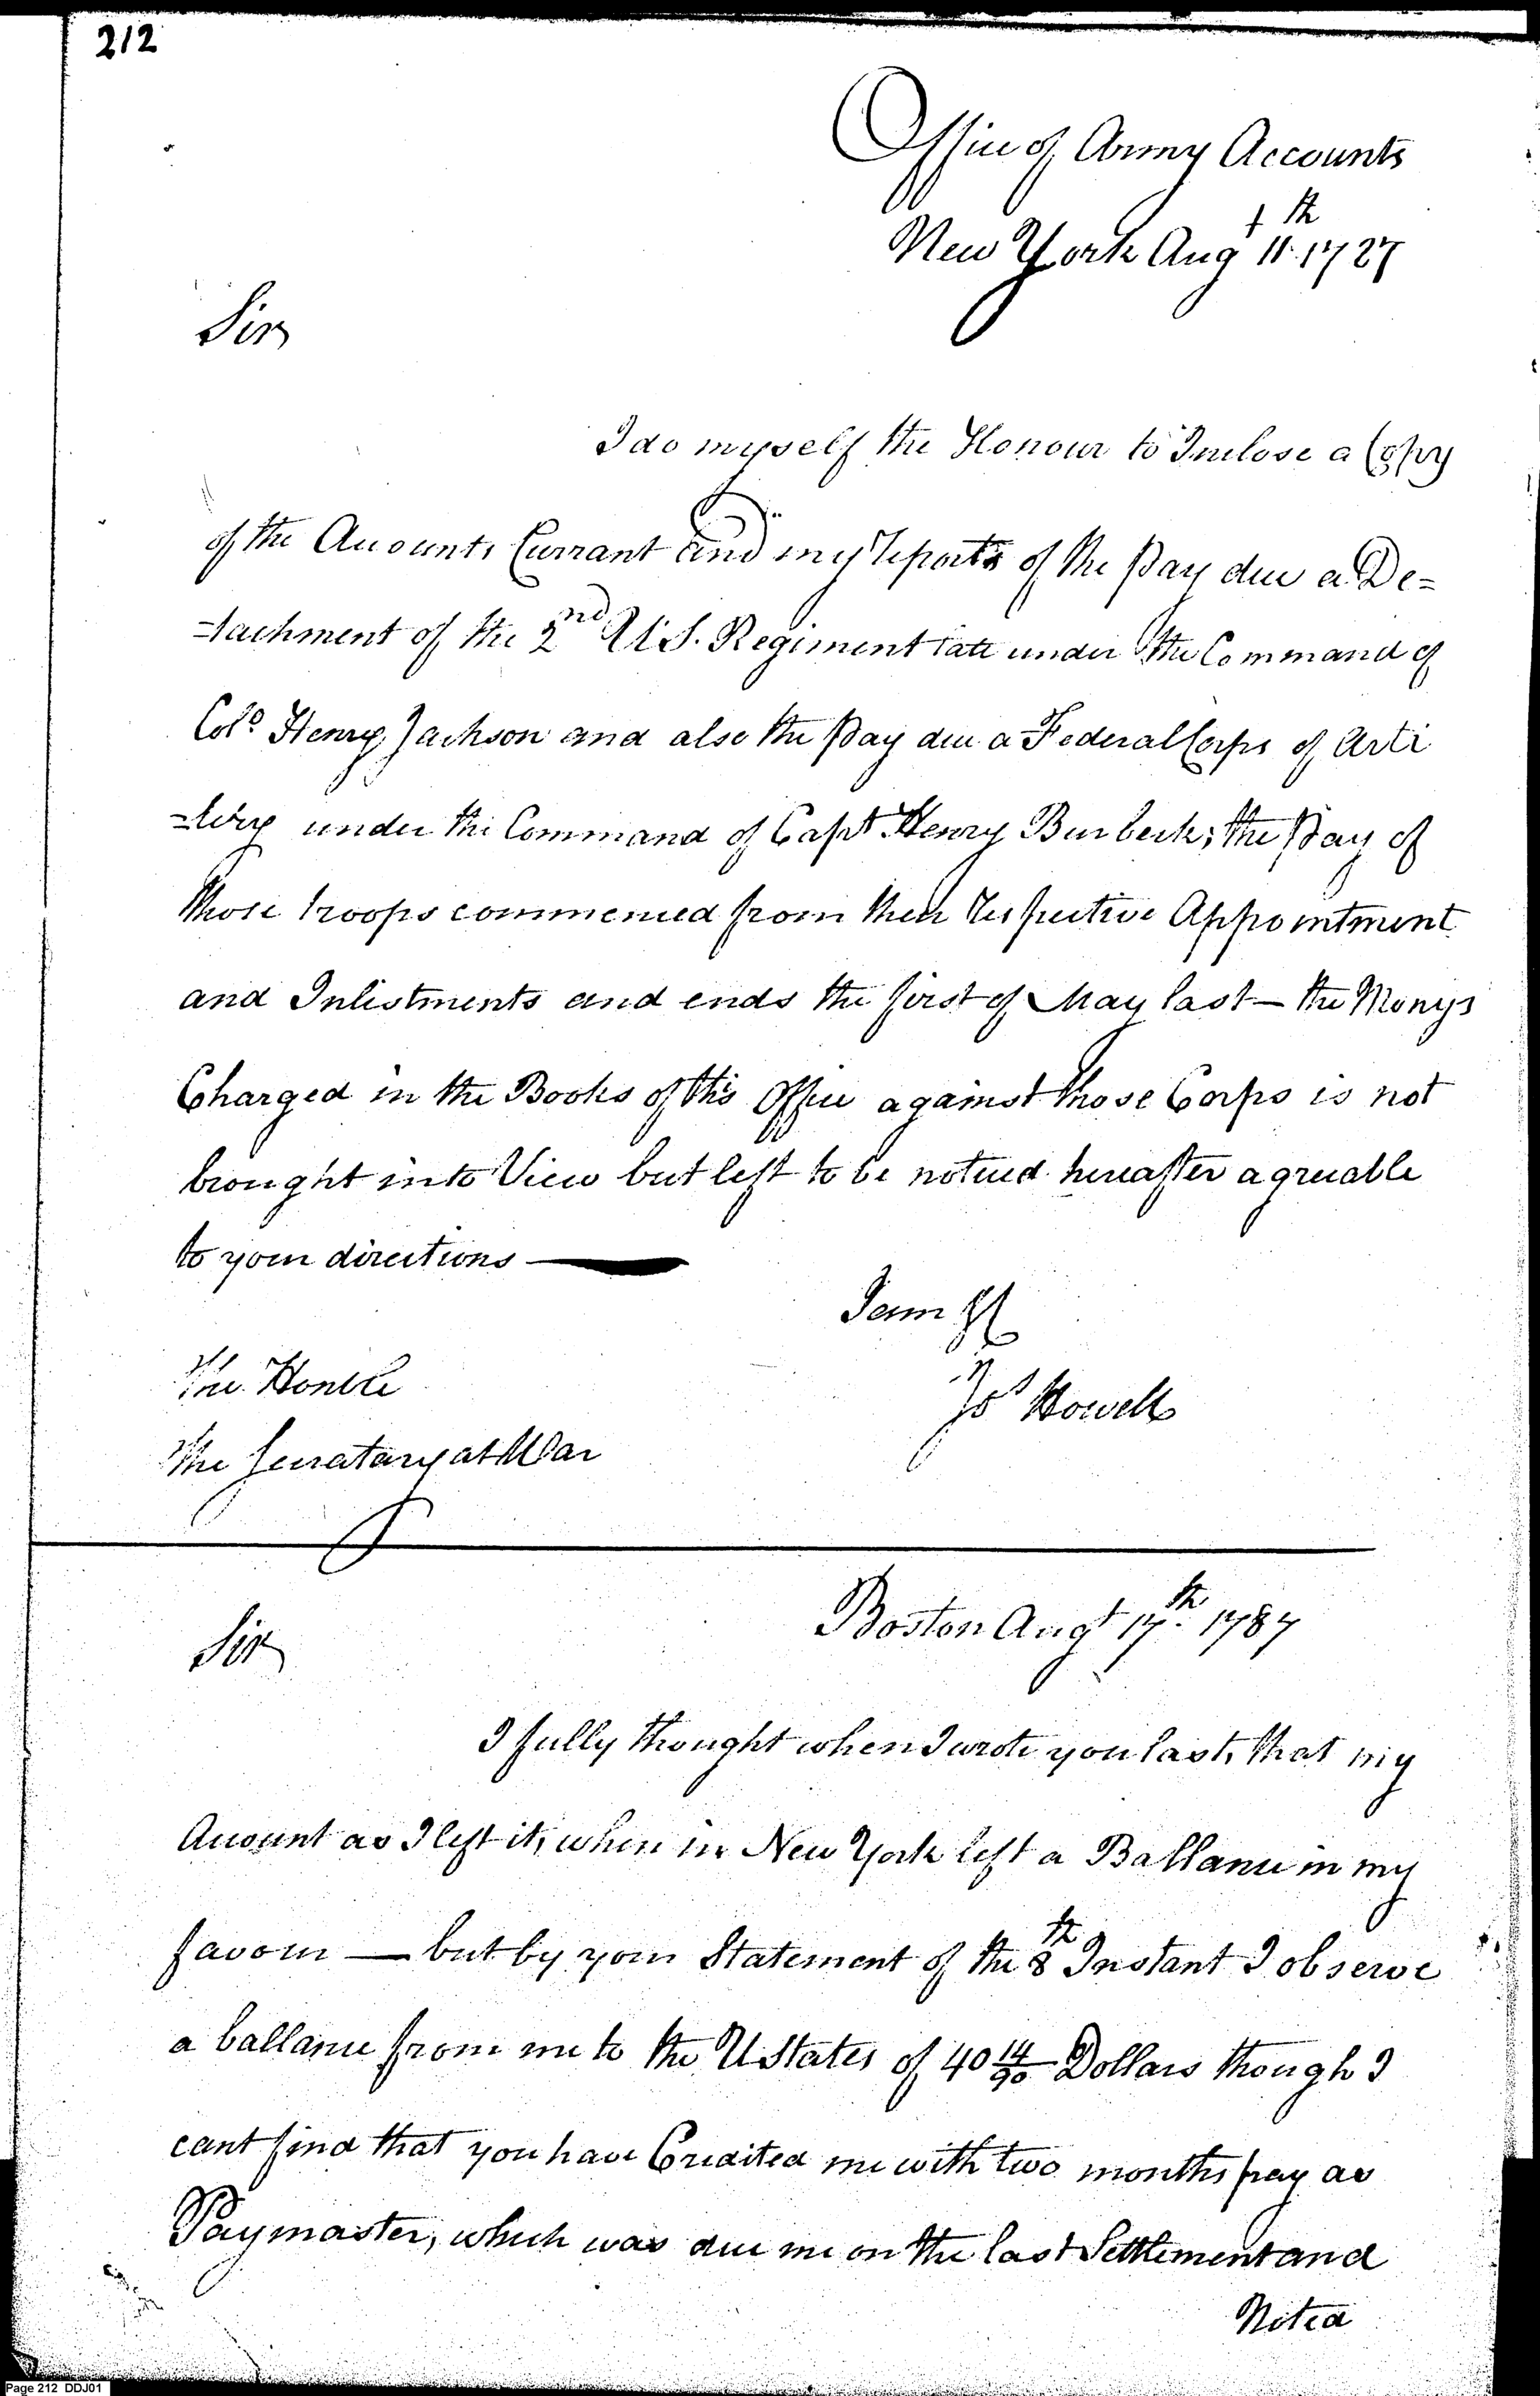 212
Office of Army Accounts
New York Augt 11th 1787
Sir
I do myself the Honour to Inclose a Copy
of the Accounts Currant and my reports of the Pay due a De=
=tachment of the 2nd U.S. Regiment late under the Command of
Colo Henry Jackson and also the Pay due a Federal Corps of Arti
=lery under the Command of Capt Henry Burbeck; the Pay of
those troops commenced from their respective Appointment
and Inlistments and ends the first of May last — the Monys
Charged in the Books of this Office against those Corps is not
brought into View but left to be noticed hereafter agreeable
to your directions —
I am &c
Jos Howell
The Honble
The Secratary at War
Boston Augt 17th 1787
Sir
I fully thought when I wrote you last, that my
Account as I left it, when in New York left a Ballance in my
favour — but by your Statement of the 8th Instant I observe
a ballance from me to the U States of 40 14/90 Dollars though I
cant find that you have Credited me with two months pay as
Paymaster, which was due me on the last Settlement and
Noted
Page 212 DDJ01